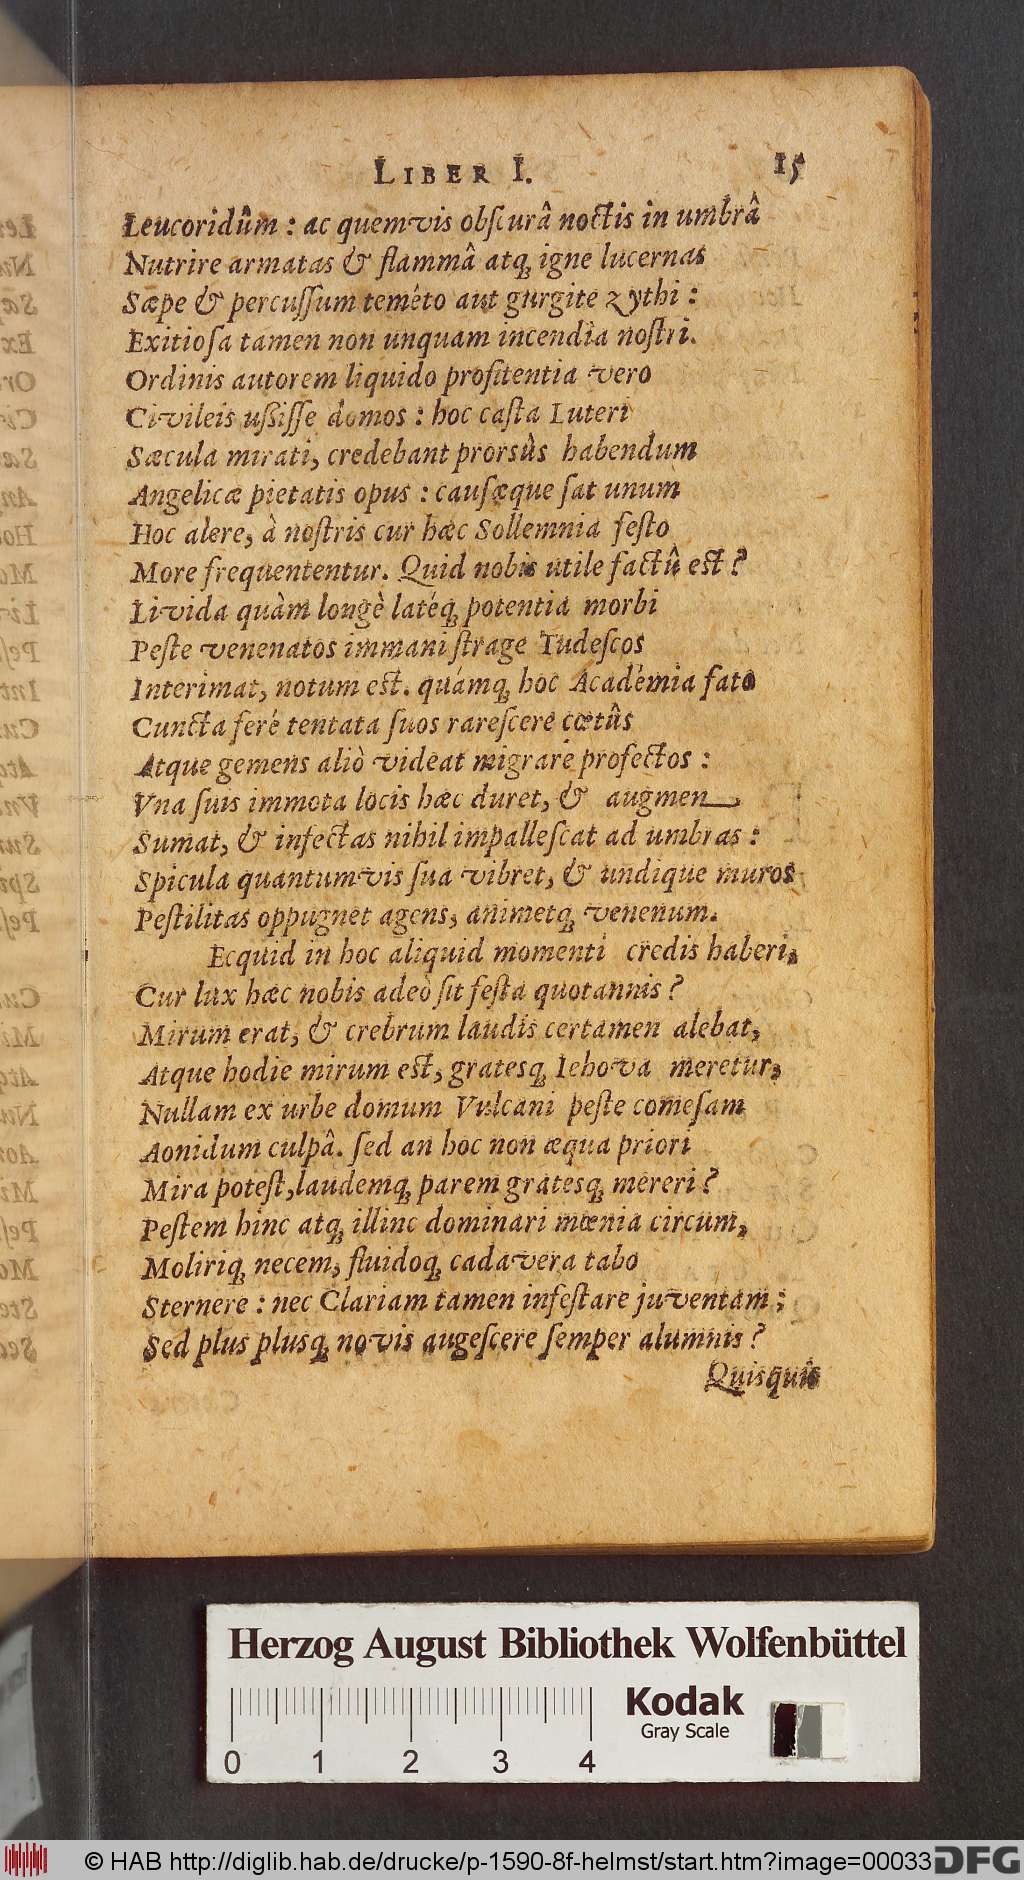 LIBER I. 15
Leucoridûm : ac quemvis obſcurâ noctis in umbrâ
Nutrire armatas & flammâ atq; igne lucernas
Sæpe & percuſſum teméto aut gurgite zythi :
Exitioſa tamen non unquam incendia noſtri.
Ordinis autorem liquido profitentia vero
Civileis uſsiſſe domos : hoc caſta Luteri
Sæcula mirati, credebant prorsûs habendum
Angelicæ pietatis opus : cauſæque ſat unum
Hoc alere, à noſtris cur hæc Sollemnia feſto
More frequententur. Quid nobis utile factû est ?
Livida quàm longè latéq; potentia morbi
Peſte venenatos immani ſtrage Tudeſcos
Interimat, notum est. quámq; hoc Académia fato
Cuncta feré tentata ſuos rareſcere cœtûs
Atque gemens aliò videat migrare profectos :
Vna ſuis immota locis hæc duret, & augmen
Sumat, & infectas nihil impalleſcat ad umbras :
Spicula quantumvis ſua vibret, & undique muros
Peſtilitas oppugnet agens, animetq; venenum.
Ecquid in hoc aliquid momenti credis haberi,
Cur lux hæc nobis adeò ſit feſta quotannis ?
Mirum erat, & crebrum laudis certamen alebat,
Atque hodie mirum est, gratesq; Iehova meretur,
Nullam ex urbe domum Vulcani peſte comeſam
Aonidum culpâ. ſed an hoc non æqua priori
Mira poteſt, laudemq; parem gratesq; mereri ?
Peſtem hinc atq; illinc dominari mœnia circum,
Moliriq; necem, fluidoq; cadavera tabo
Sternere : nec Clariam tamen infeſtare juventam ;
Sed plus plusq; novis augeſcere ſemper alumnis ?
Quisquis
Herzog August Bibliothek Wolfenbüttel
Kodak
Gray Scale
0 1 2 3 4
© HAB http://diglib.hab.de/drucke/p-1590-8f-helmst/start.htm?image=00033
DFG